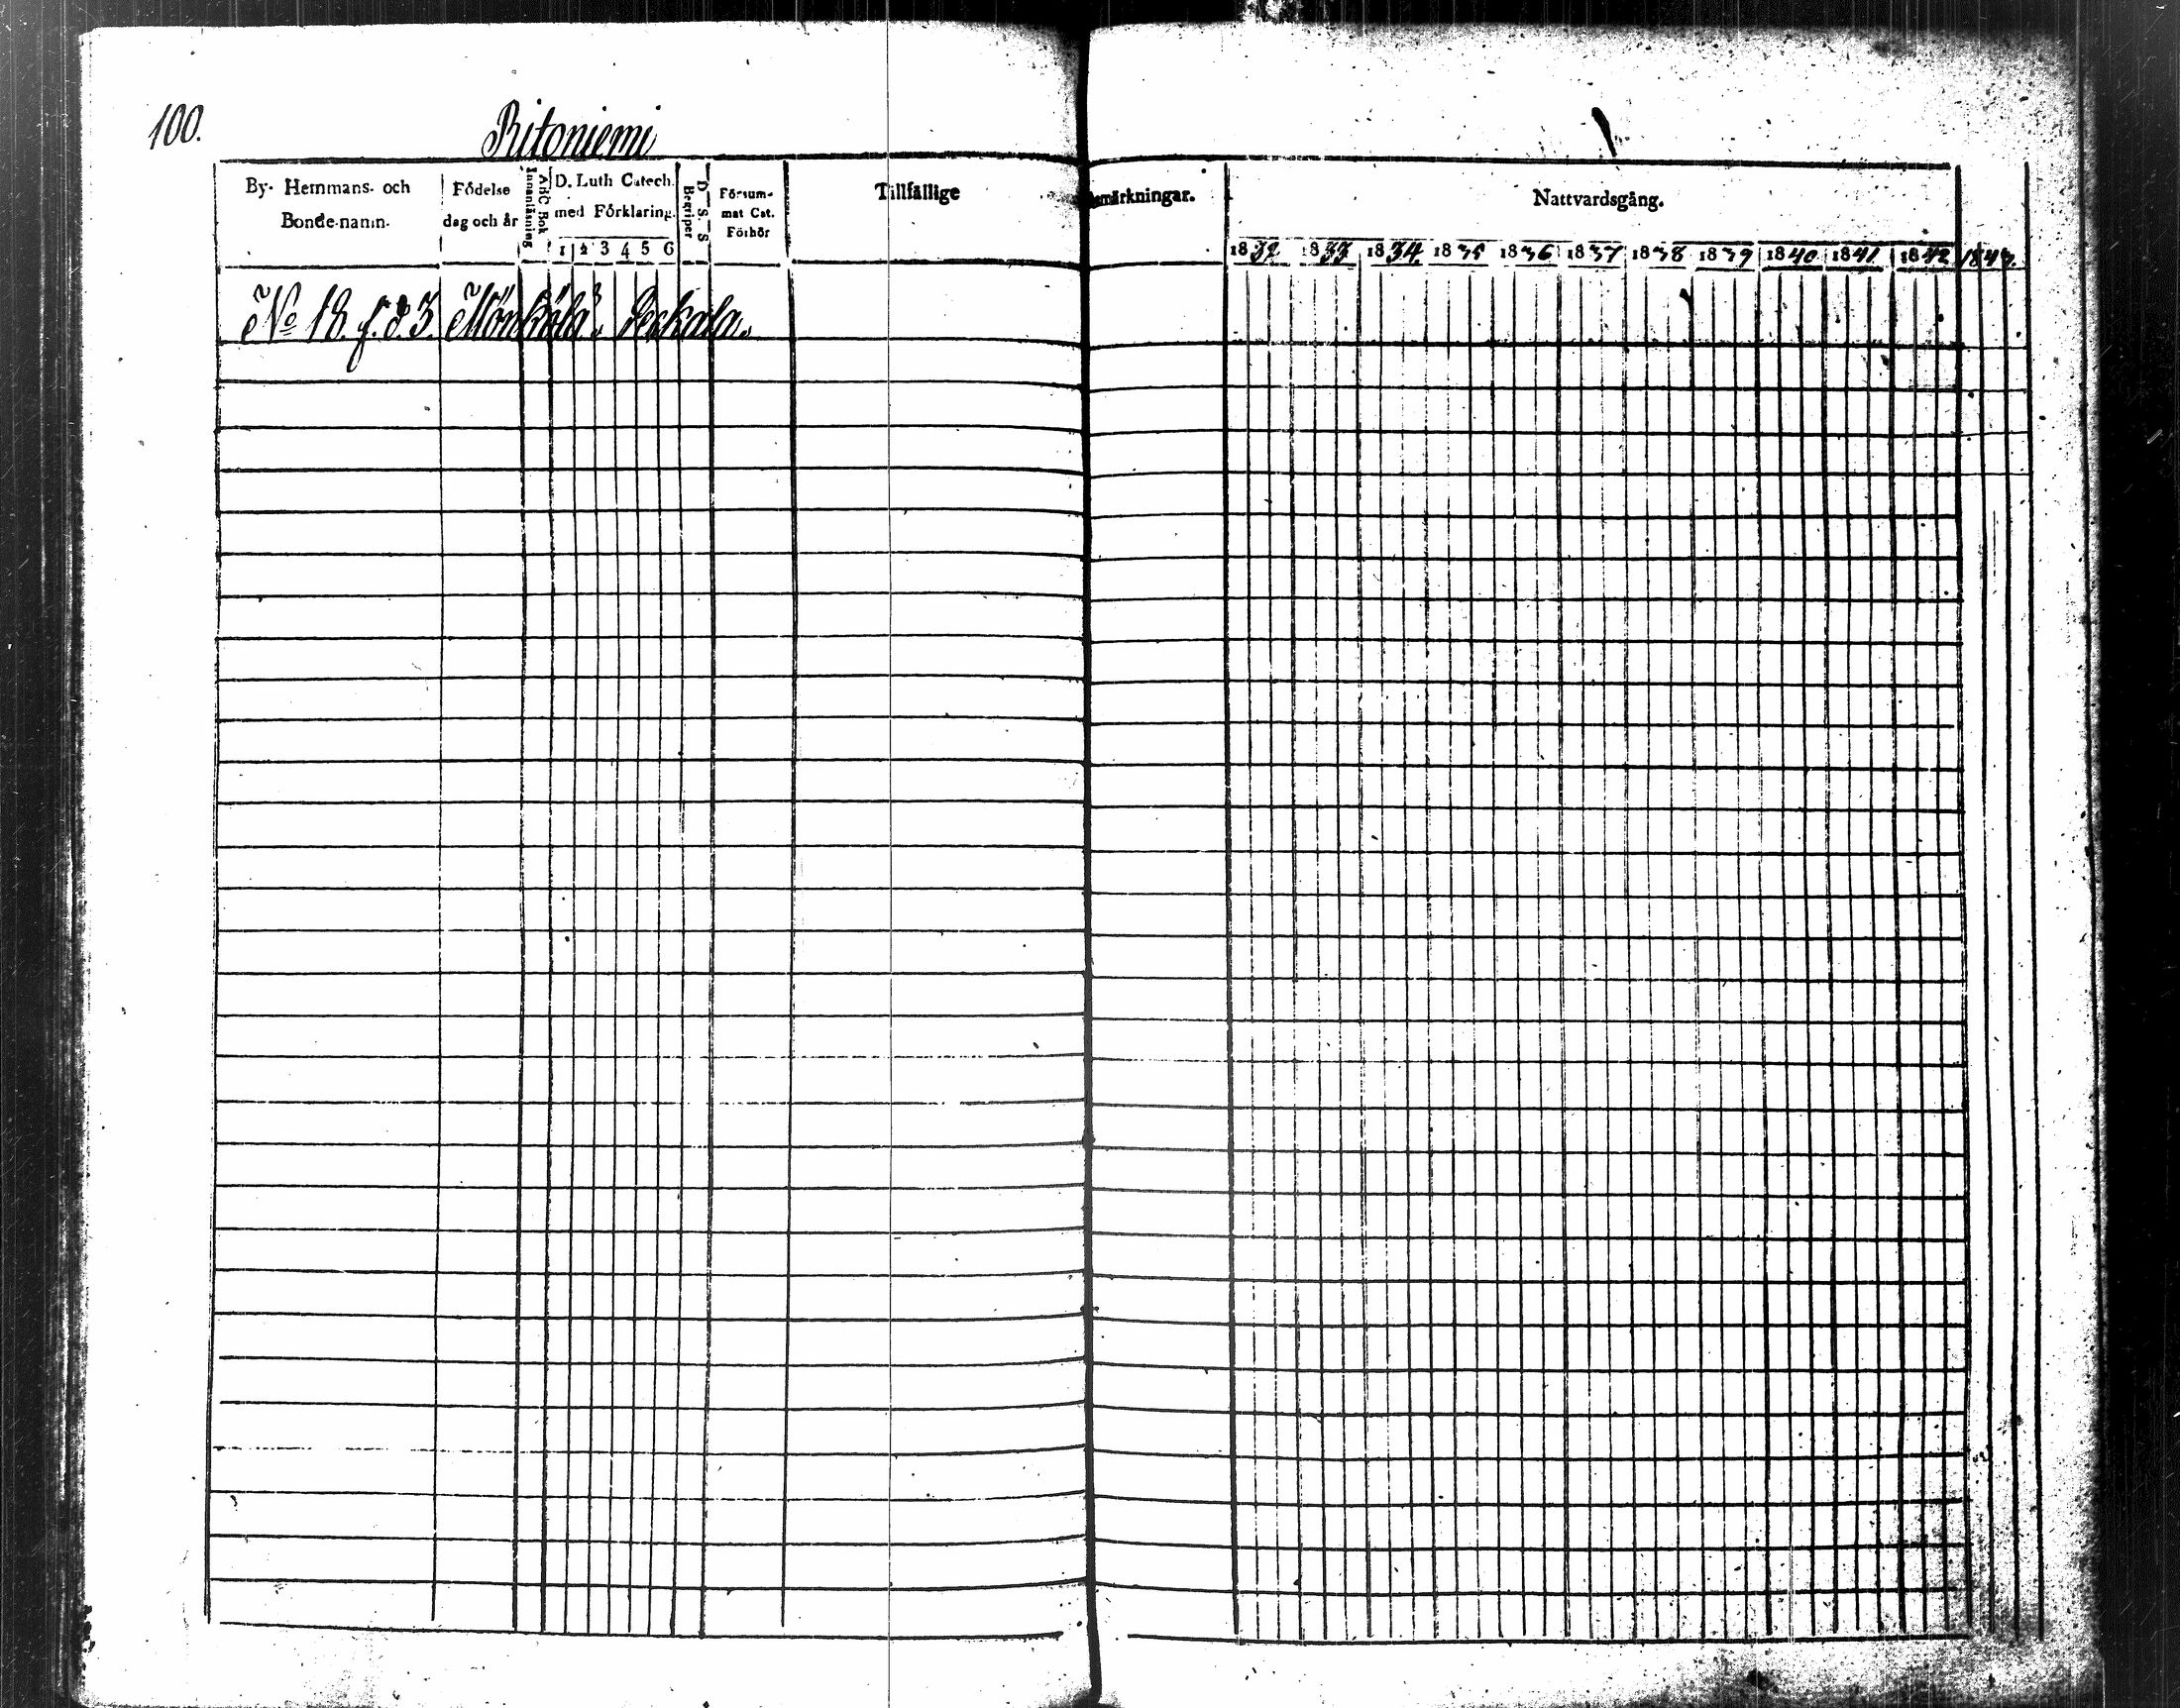 100.
Ritoniemi
By- Hemmans- och Bonde-namn.
Födelse dag och år
A B C Bok Innanläsning
D. Luth Catech. med Förklaring.
1 2 3 4 5 6
D. S. S. Begriper
Försummat Cat. Förhör
Tillfällige
Anmärkningar.
Nattvardsgång.
1832 1833 1834 1835 1836 1837 1838 1839 1840 1841 1842 1843.
No 18. Mönkölä.